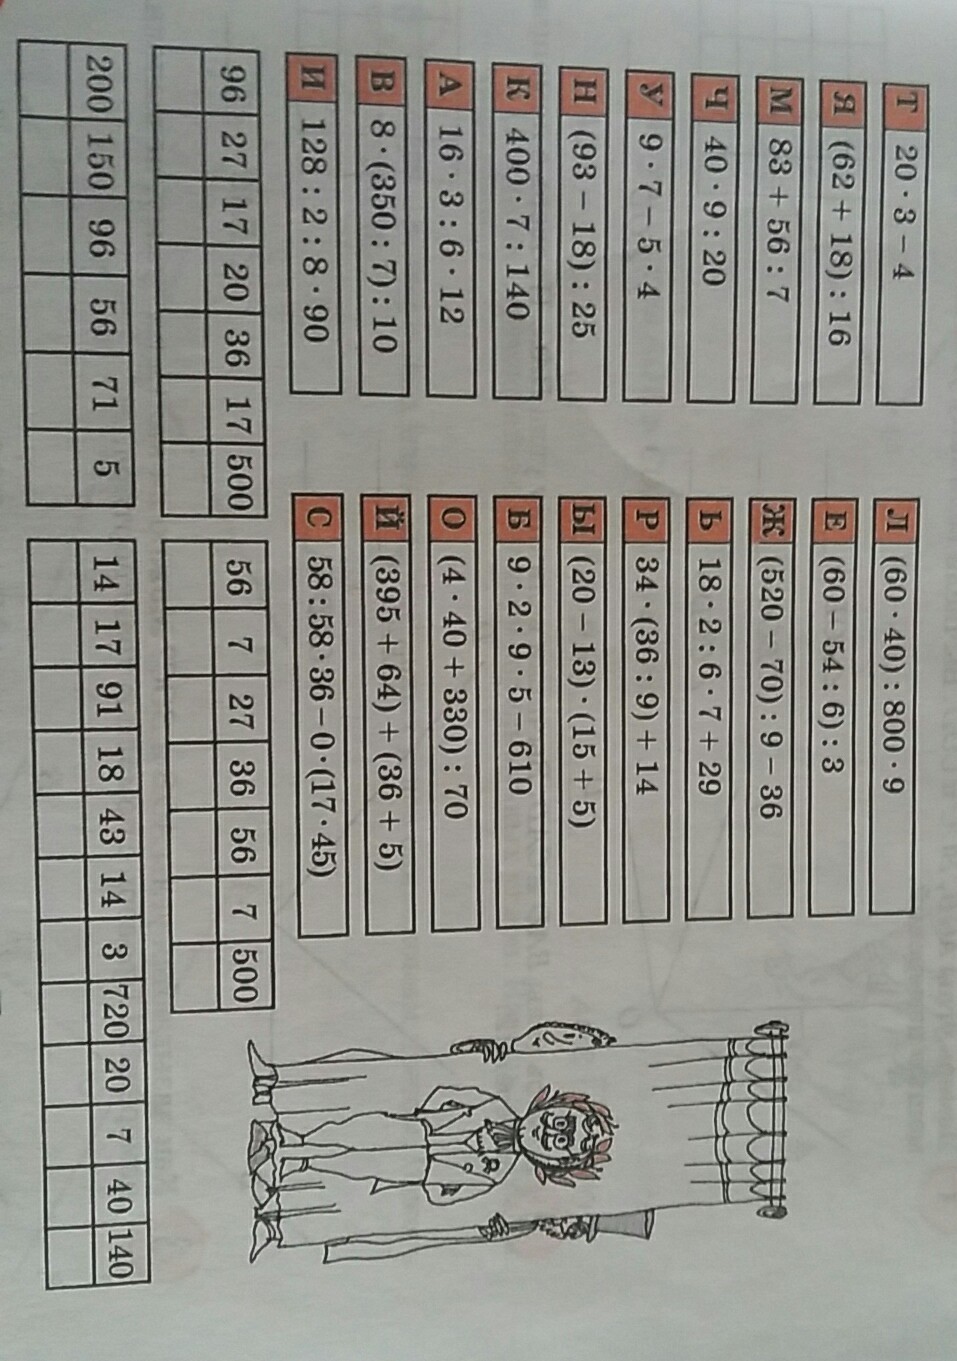 Т 20 · 3 − 4
Я (62 + 18) : 16
М 83 + 56 : 7
Ч 40 · 9 : 20
У 9 · 7 − 5 · 4
Н (93 − 18) : 25
К 400 · 7 : 140
А 16 · 3 : 6 · 12
В 8 · (350 : 7) : 10
И 128 : 2 : 8 · 90
Л (60 · 40) : 800 · 9
Е (60 − 54 : 6) : 3
Ж (520 − 70) : 9 − 36
Ь 18 · 2 : 6 · 7 + 29
Р 34 · (36 : 9) + 14
Ы (20 − 13) · (15 + 5)
Б 9 · 2 · 9 · 5 − 610
О (4 · 40 + 330) : 70
Й (395 + 64) + (36 + 5)
С 58 : 58 · 36 − 0 · (17 · 45)
96 27 17 20 36 17 500
56 7 27 36 56 7 500
200 150 96 56 71 5
14 17 91 18 43 14 3 720 20 7 40 140